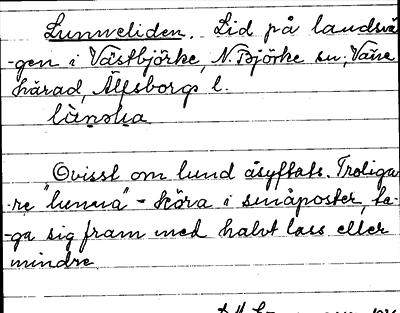 Lunneliden. Lid på landsvä
-gen i Västbjörke, N. Björke sn; Väne
härad, Älfsborgs l.
Ovisst om lund åsyftats. Troliga
-re "lunna" - köra i småposter, ta-
-ga sig fram med halvt lass eller
mindre